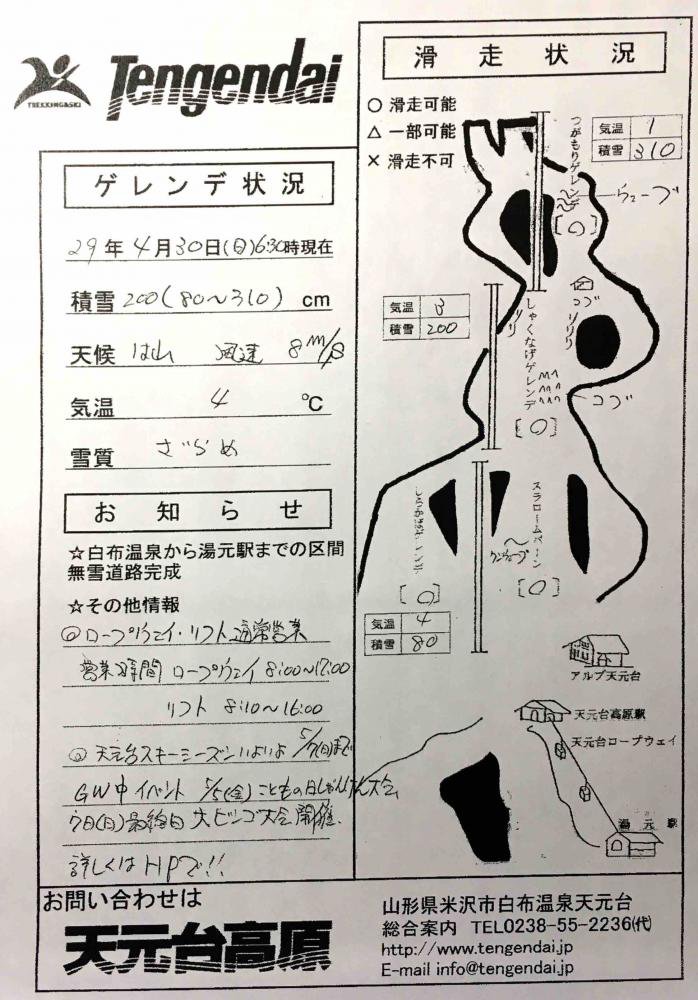 TREKKING&SKI
Tengendai
ゲレンデ状況
29年4月30日(日)6:30時現在
積雪 200(80～310) cm
天候 はれ 風速 8m/s
気温 4 ℃
雪質 ざらめ
お知らせ
☆白布温泉から湯元駅までの区間
無雪道路完成
☆その他情報
◎ロープウェイ・リフト通常営業
営業時間 ロープウェイ 8:00～17:00
リフト 8:10～16:00
◎天元台スキーシーズンいよいよ 5/7(日)まで
GW中イベント 5/5(金)こどもの日じゃんけん大会
7日(日)最終日 大ビンゴ大会開催.
詳しくはHPで!!
滑走状況
○ 滑走可能
△ 一部可能
× 滑走不可
気温 1
積雪 310
つがもりゲレンデ
[○]
ウェーブ
コブ
気温 3
積雪 200
しゃくなげゲレンデ
コブ
[○]
スラロームバーン
[○]
[○]
気温 4
積雪 80
アルブ天元台
天元台高原駅
天元台ロープウェイ
湯元駅
お問い合わせは
天元台高原
山形県米沢市白布温泉天元台
総合案内 TEL0238-55-2236(代)
http://www.tengendai.jp
E-mail info@tengendai.jp